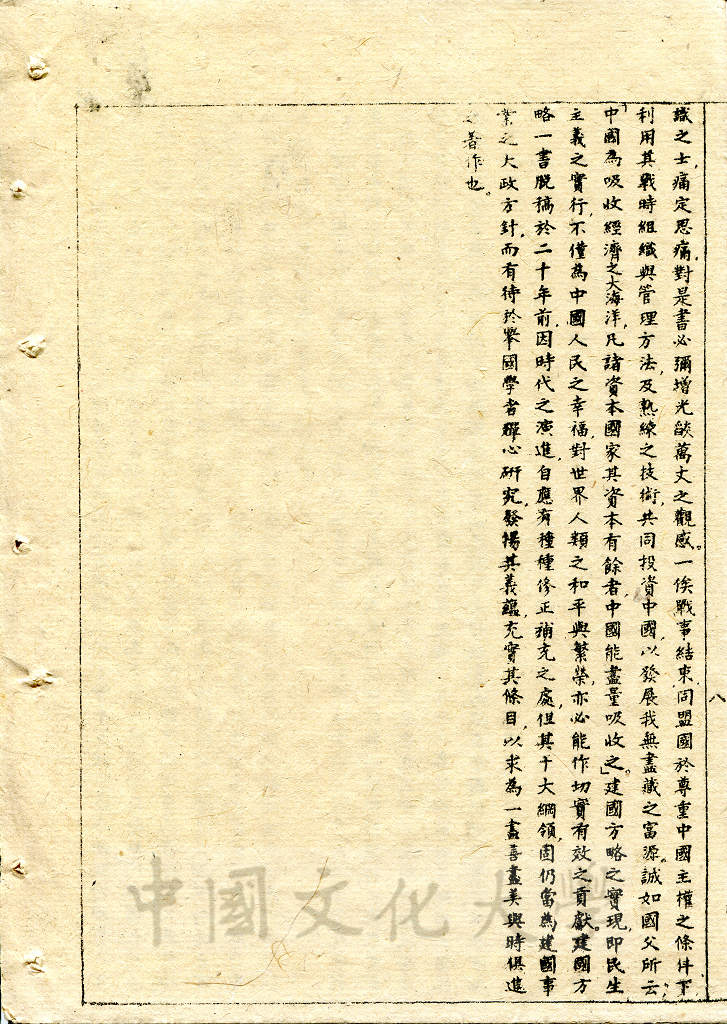 識之士,痛定思痛,對是書必彌增光燄萬丈之觀感。一俟戰事結束,同盟國於尊重中國主權之條件下,
利用其戰時組織與管理方法,及熟練之技術,共同投資中國,以發展我無盡藏之富源。誠如國父所云:
「中國為吸收經濟之大海洋,凡諸資本國家其資本有餘者,中國能盡量吸收之」。建國方略之實現,即民生
主義之實行,不僅為中國人民之幸福,對世界人類之和平與繁榮,亦必能作切實有效之貢獻。建國方
略一書脫稿於二十年前,因時代之演進,自應有種種修正補充之處,但其千大綱領,固仍當為建國事
業之大政方針,而有待於舉國學者殫心研究,發揚其義蘊,充實其條目,以求為一盡善盡美與時俱進
之著作也。
八
中國文化大學